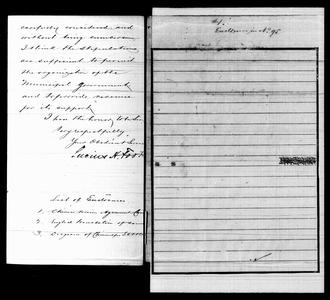 carefully considered and
without being unanimous
I think the stipulations
are sufficient to permit
the organization of the
Municipal Government
and to provide revenue
for its support
I have the honor to be
Very respectfully
Your Obedient
Lucius H. Foote
List of Enclosures
1. Agreement
2. English Translation of same
3. Diagram of
#1.
Enclosure in No 95